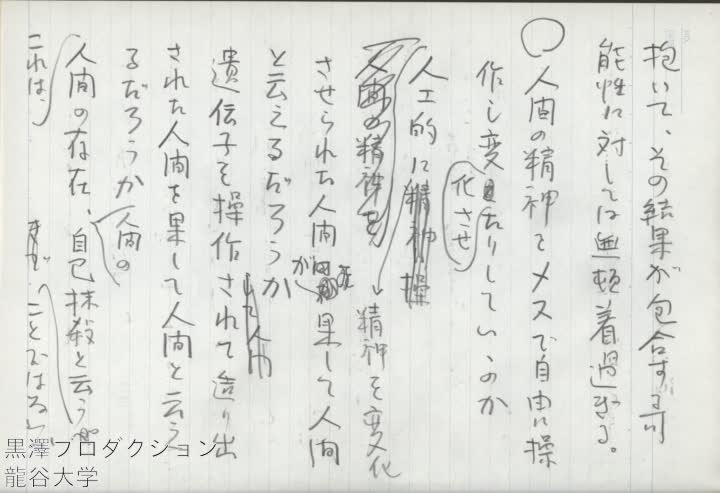 抱いて、その結果が包含する可
能性に対しては無頓着過ぎる。
○人間の精神をメスで自由に操
作し変化させたりしていゝのか
人工的に精神操
人間の精神を→精神を変化
させられた人間が果して人間
と云えるだろうか
遺伝子を操作されて造り出
して人間
された人間を果して人間と云え
るだろうか
人間の
人間の存在、自己抹殺と云うべ
きで、ことではないか
これは、
黒澤プロダクション
龍谷大学